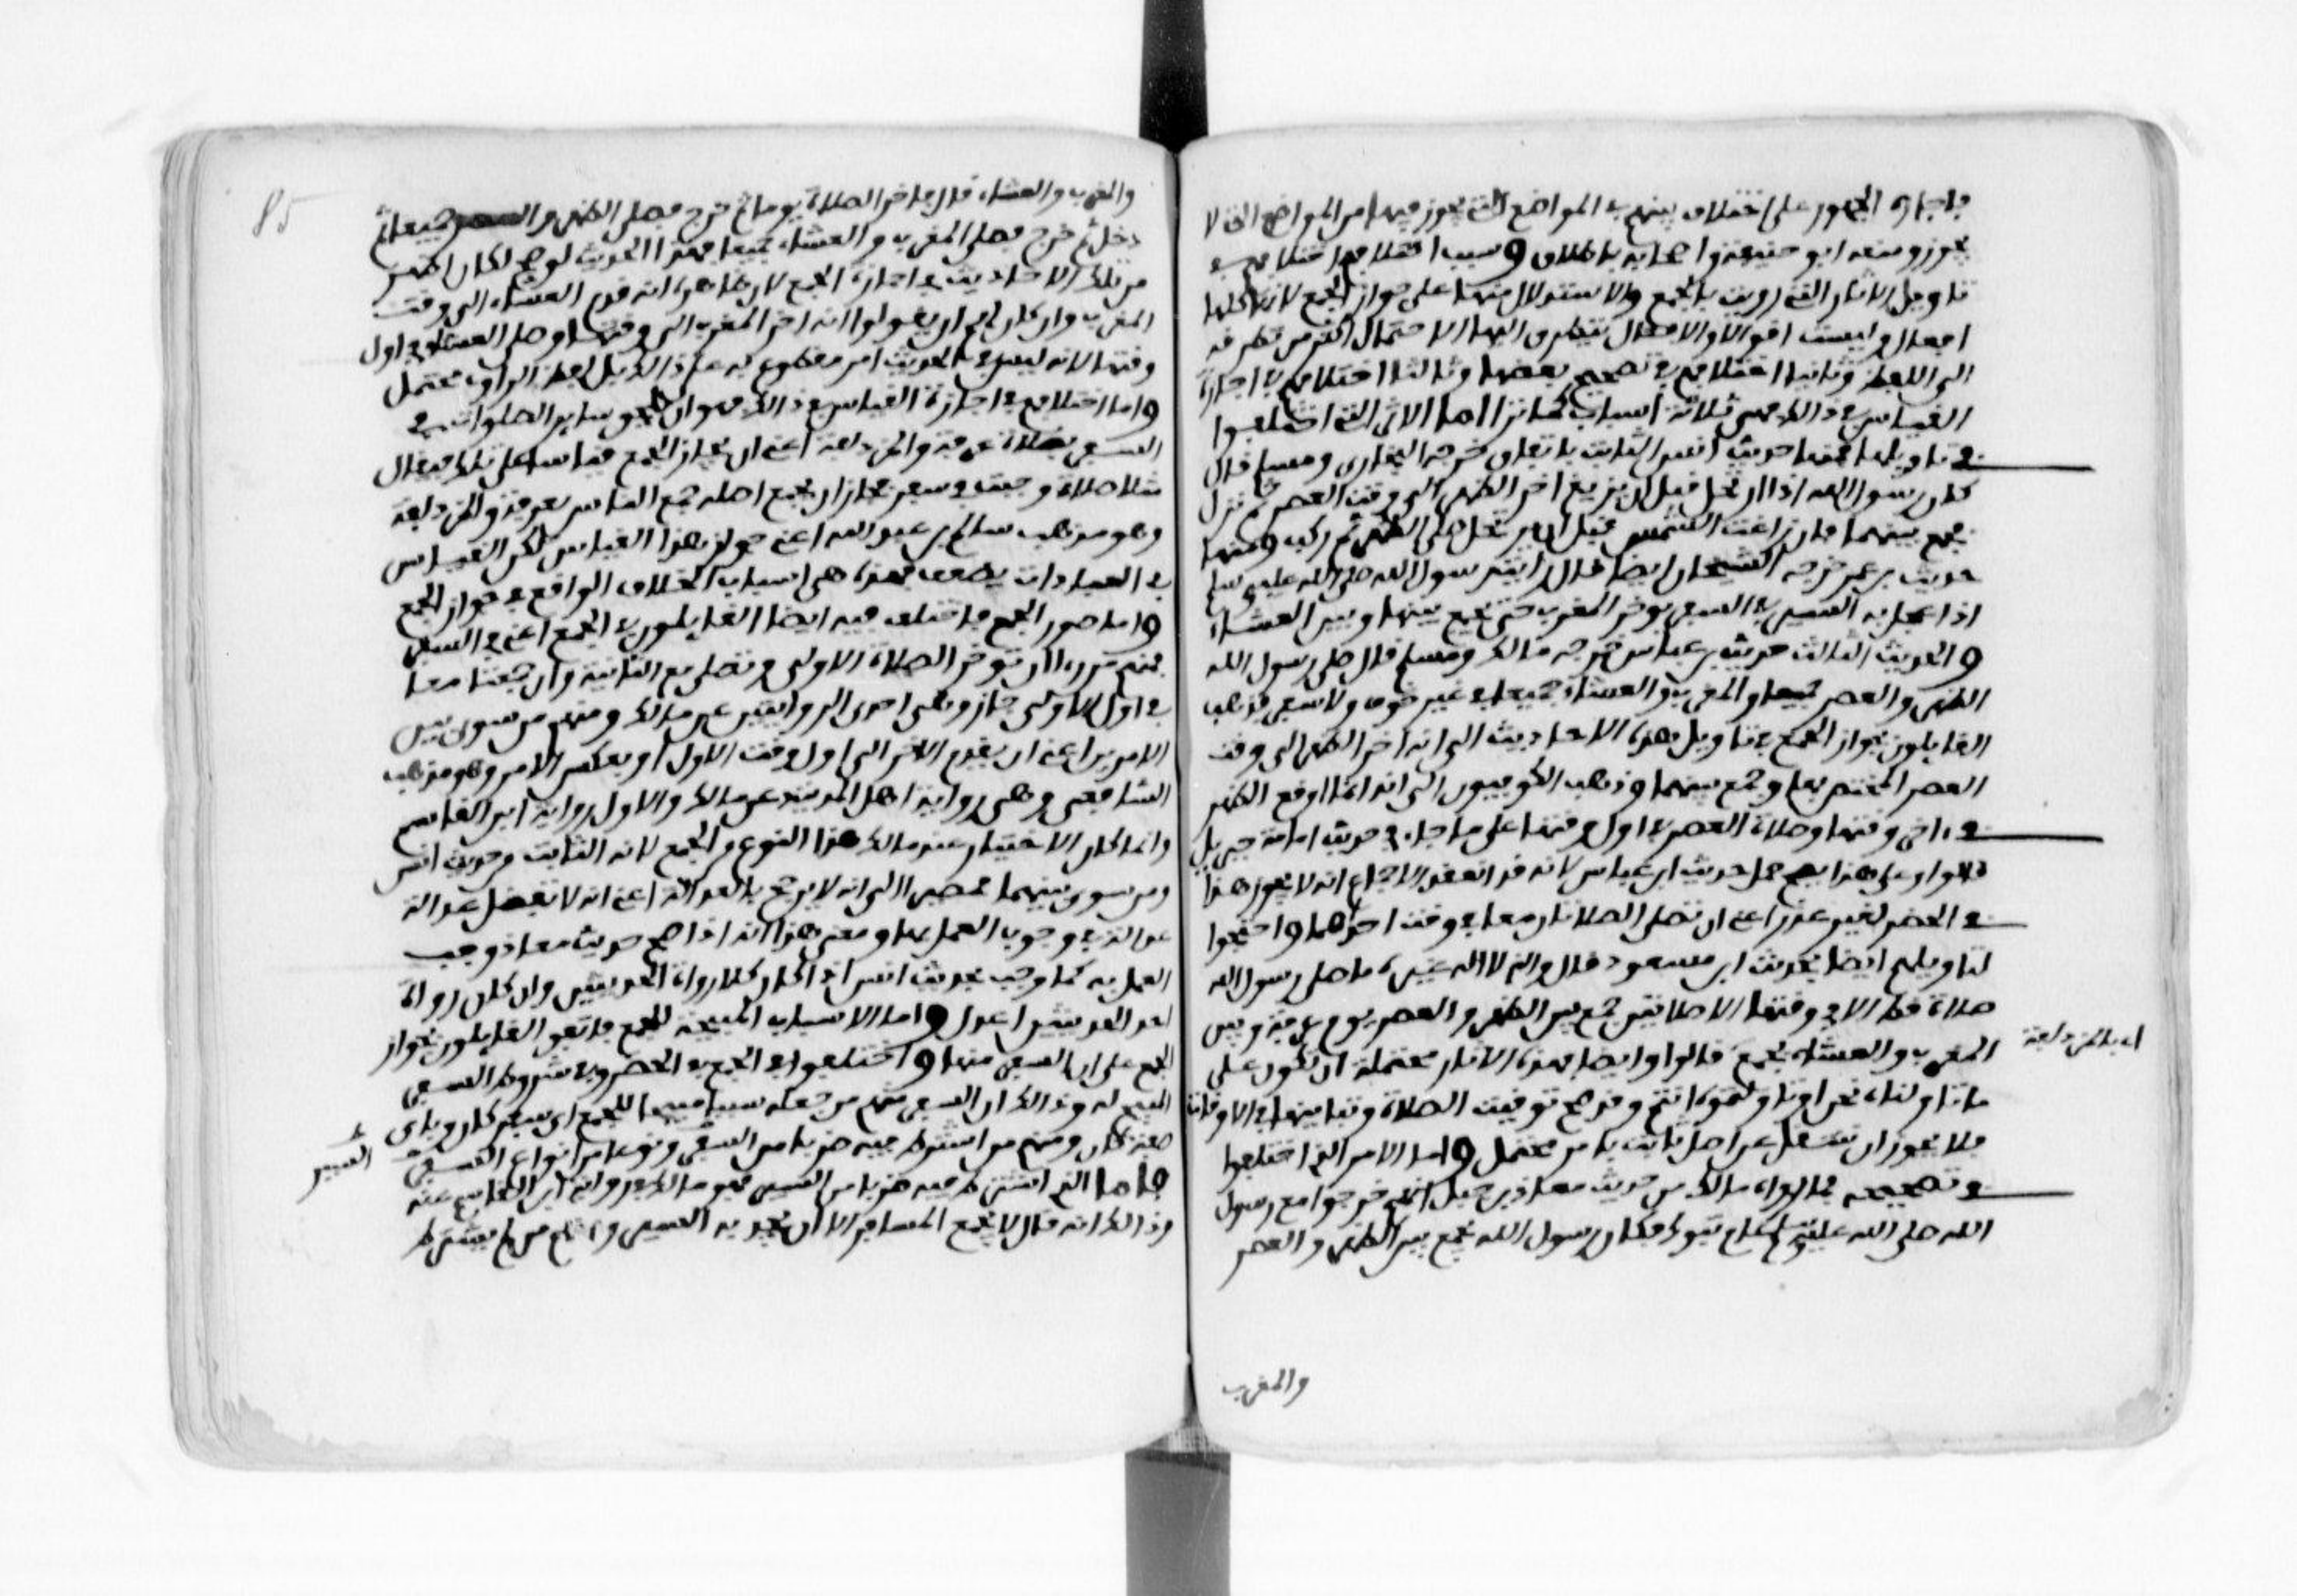 فاجازه الجمهور على اختلاف بينهم في المواضع التي يجوز فيها من المواضع التي لا
يجوز ومنعه ابو حنيفة واصحابه باطلاق وسبب اختلافهم اختلافهم في
تاويل الاثار التي رويت في الجمع والاستدلال منها على جواز الجمع لانها كلها
افعال وليست اقوالا والافعال يتطرق اليها الاحتمال اكثر من تطرفه
الى اللفظ وثانيا اختلافهم في تصحيح بعضها وثالثا اختلافهم في اجازة
القياس في ذالك فهي ثلاثة اسباب كما ترا اما الاثار التي اختلفوا
في تاويلها فمنها حديث انس الثابت باتفاق خرجه البخاري ومسلم قال
كان رسول الله اذا ارتحل قبل ان تزيغ اخر الظهر الى وقت العصر ثم نزل
فجمع بينهما فان زاغت الشمس قبل ان يرتحل صلى الظهر ثم ركب ومنها
حديث بن عمر خرجه الشيخان ايضا قال رايت رسول الله صلى الله عليه وسلم
اذا عجل به السير في السفر يوخر المغرب حتى يجمع بينها وبين العشاء
والحديث الثالث حديث بن عباس خرجه مالك ومسلم قال صلى رسول الله
الظهر والعصر جميعا والمغرب والعشاء جميعا في غير خوف ولا سفر فذهب
القايلون بجواز الجمع في تاويل هذه الاحاديث الى انه اخر الظهر الى وقت
العصر المختص بها وجمع بينهما وذهب الكوفيون الى انه انما اوقع الظهر
في اخر وقتها وصلاة العصر في اول وقتها على ما جاء في حديث امامة جبريل
قالوا وعلى هذا يصح حمل حديث ابن عباس لانه قد انعقد الاجماع انه لا يجوز هذا
في الحضر لغير عذر اعني ان تصلى الصلاتان معا في وقت احداهما واحتجوا
لتاويلهم ايضا بحديث ابن مسعود قال والذي لا اله غيره ما صلى رسول الله
صلاة قط الا في وقتها الا صلاتين جمع بين الظهر والعصر يوم عرفة وبين
المغرب والعشاء بجمع قالوا وايضا فهذه الاثار محتملة ان تكون على
اي بالمزدلفة
ما تاولناه نحن او تاولتموه انتم وقد صح توقيت الصلاة وتبيانها في الاوقات
فلا يجوز ان تنتقل عن اصل ثابت بامر محتمل واما الامر الذي اختلفوا
في تصحيحه فما رواه مالك من حديث معاذ بن جبل انهم خرجوا مع رسول
الله صلى الله عليه وسلم عام تبوك فكان رسول الله يجمع بين الظهر والعصر
والمغرب
والمغرب والعشاء قال فاخر الصلاة يوما ثم خرج فصلى الظهر والعصر جميعا ثم
دخل ثم خرج فصلى المغرب والعشاء جميعا فهذا الحديث لو صح لكان اظهر
من تلك الاحاديث في اجازة الجمع لان ظاهره انه قدم العشاء الى وقت
المغرب وان كان لهم ان يقولوا انه اخر المغرب الى وقتها وصلى العشاء في اول
وقتها لانه ليس في الحديث امر مقطوع به على ذالك بل لفظ الراوي محتمل
واما اختلافهم في اجازة القياس في ذالك فهو ان يلحق ساير الصلوات في
السفر بصلاة عرفة والمزدلفة اعني ان يجاز الجمع قياسا على تلك فيقال
مثلا صلاة وجبت في سفر فجاز ان يجمع اصله جمع الناس بعرفة والمزدلفة
وهو مذهب سالم بن عبد الله اعني جواز هذا القياس لكن القياس
في العبادات يضعف فهذه هي اسباب الخلاف الواقع في جواز الجمع
واما صور الجمع فاختلف فيه ايضا القايلون في الجمع اعني في السفر
فمنهم من را ان توخر الصلاة الاولى وتصلى مع الثانية وان جمعتا معا
في اول الاولى جاز وهي احدى الروايتين عن مالك ومنهم من سوى بين
الامرين اعني ان يقدم الاخر الى اول وقت الاول او بعكس الامر وهو مذهب
الشافعي وهي رواية اهل المدينة عن مالك والاول رواية ابن القاسم
وانما كان الاختيار عند مالك هذا النوع من الجمع لانه الثابت من حديث انس
ومن سوى بينهما فمصيرا الى انه لا يرجح بالعدالة اعني انه لا تفضل عدالة
عدالة في وجوب العمل بها ومعنى هذا انه اذا صح حديث معاذ وجب
العمل به كما وجب بحديث انس اذا كان كلا رواة الحديثين وان كان رواة
احد الحديثين اعدل واما الاسباب المبيحة للجمع فاتفق القايلون بجواز
الجمع على ان السفر منها واختلفوا في الجمع في الحضر وفي شروط السفر
المبيح له وذالك ان السفر منهم من جعله سببا مبيحا للجمع اي سفر كان وباي
صفة كان ومنهم من اشترط فيه ضربا من السفر ونوعا من انواع السفر
السير
فاما الذي اشترط فيه ضربا من السير فهو مالك في رواية ابن القاسم عنه
وذالك انه قال لا يجمع المسافر الا ان يجد به السير ومنهم من لم يشترط
85